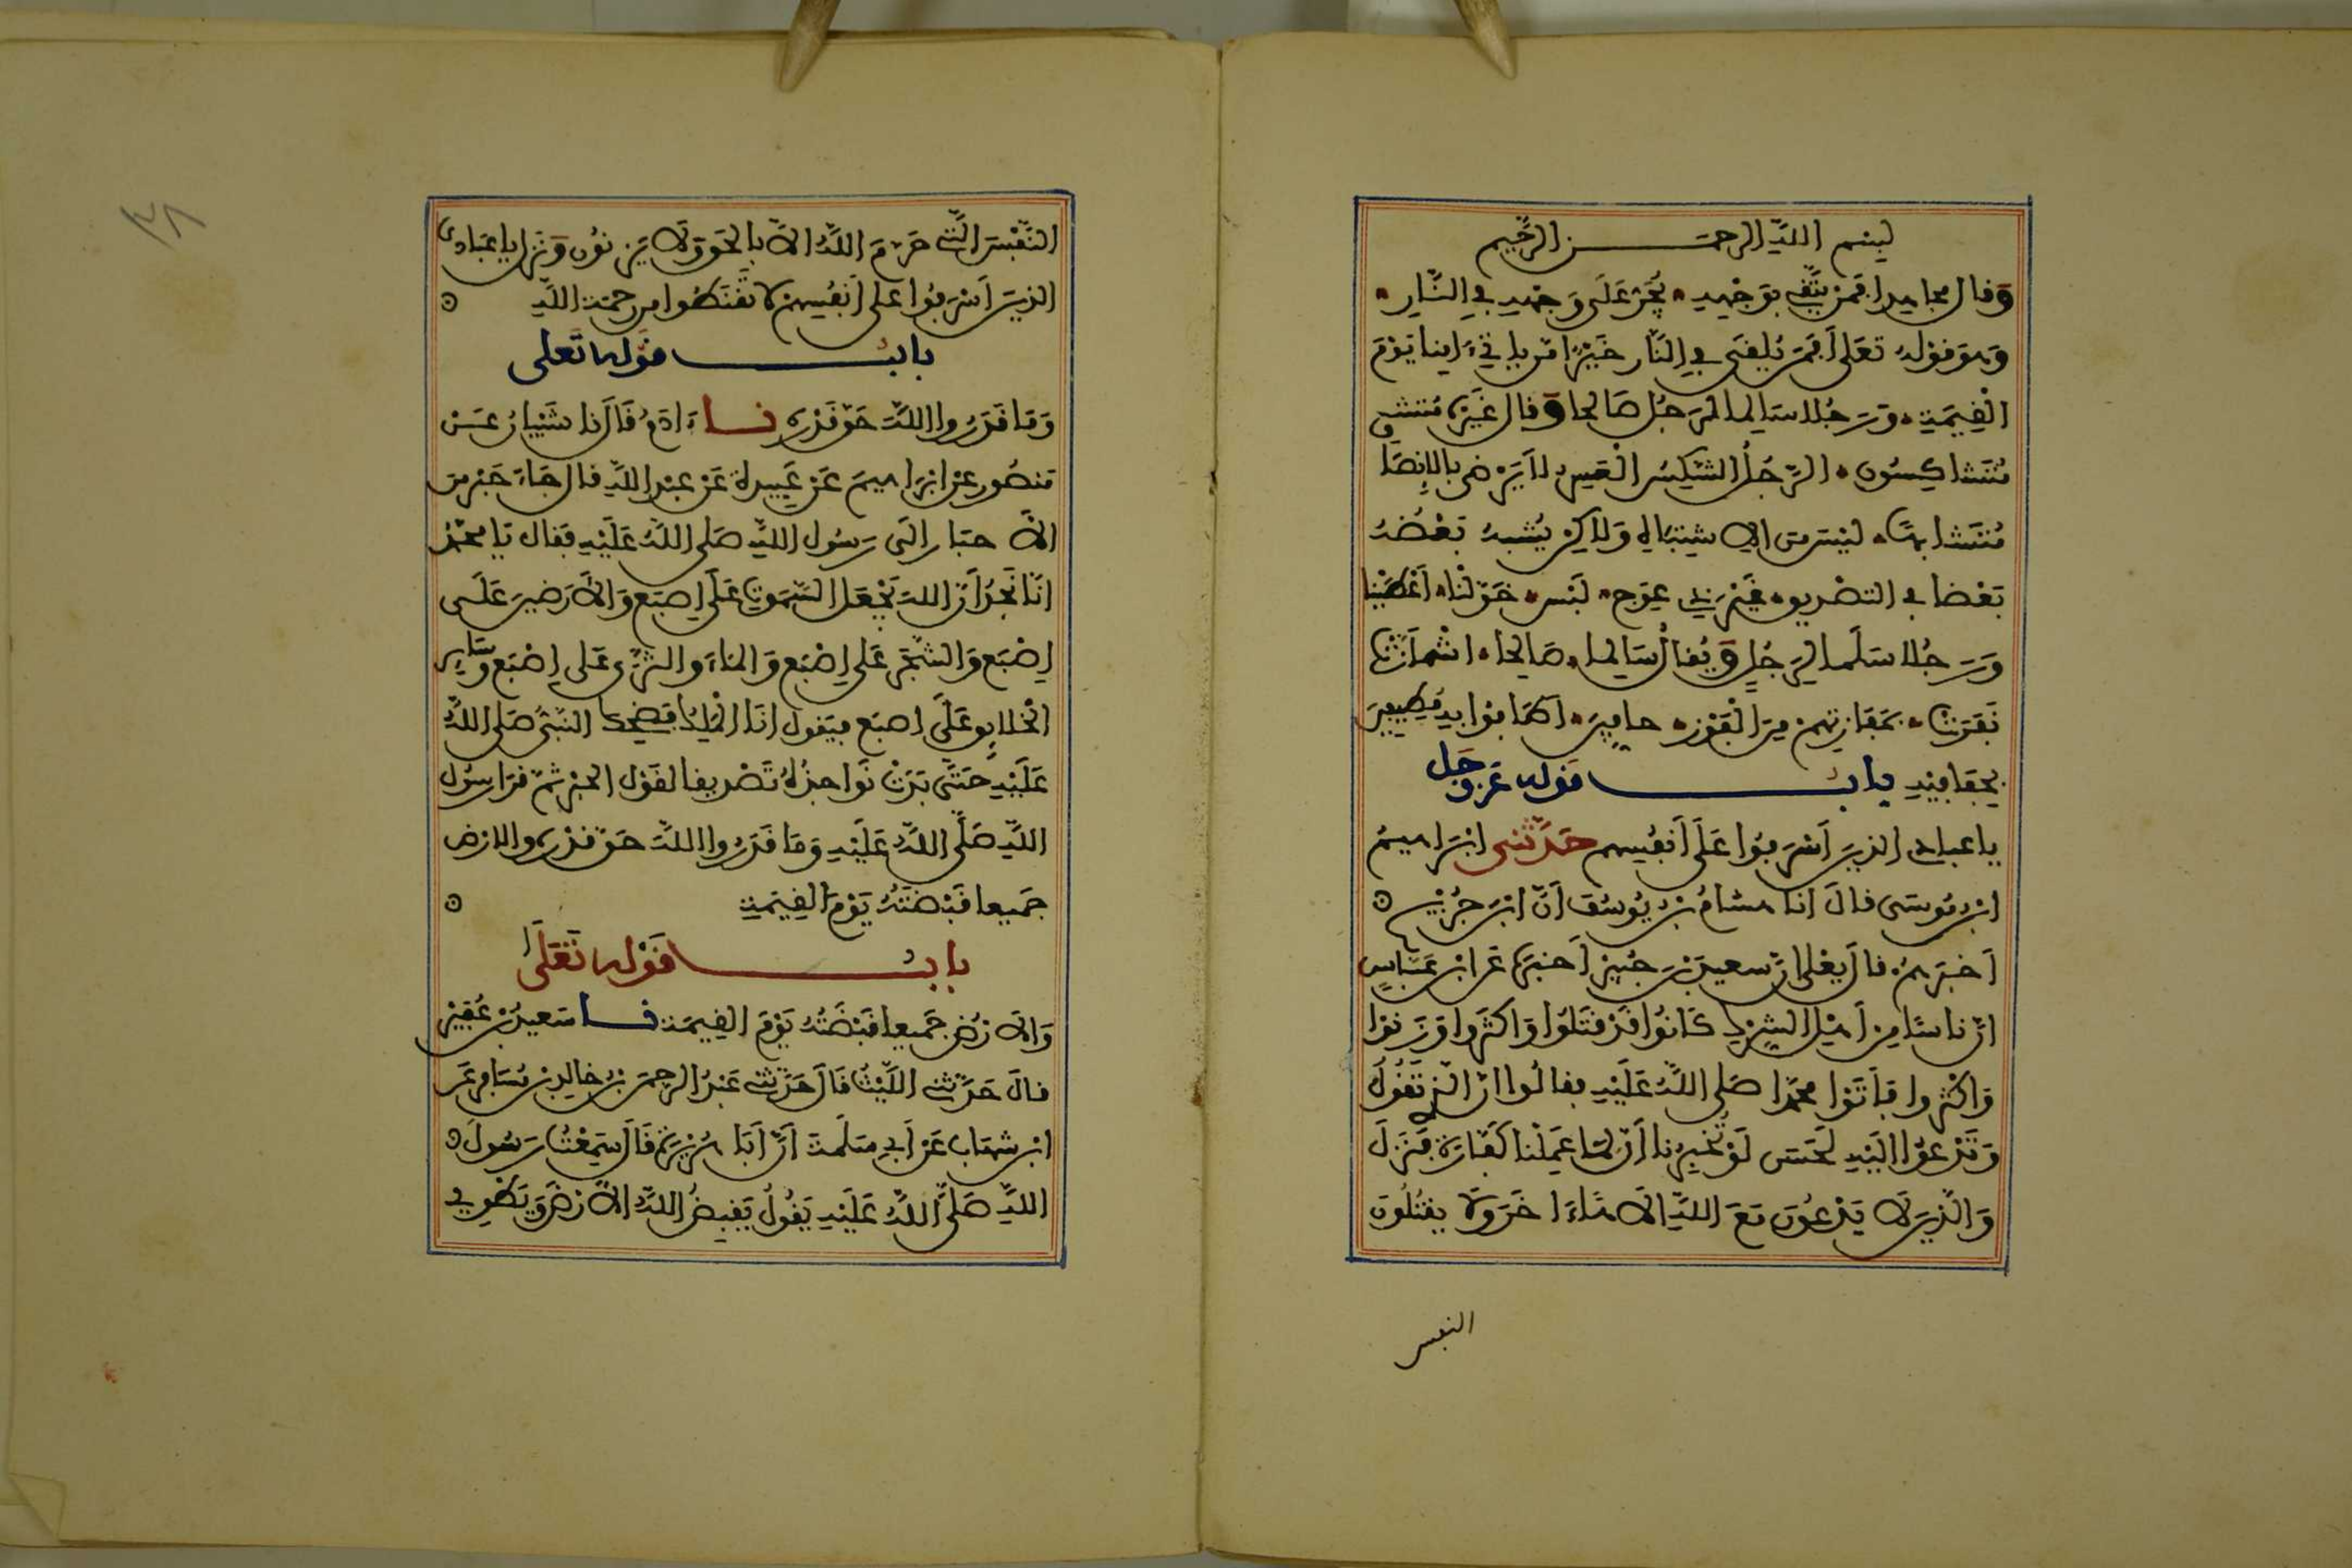 بسم الله الرحمن الرحيم
وقال مجاهد افمن يتقي بوجهه يجر على وجهه في النار
وهو قوله تعلى أفمن يلقى في النار خير امن ياتي ءامنا يوم
القيمة ورجلا سالما لرجل صالحا وقال غيره متشـ
متشاكسون الرجل الشكس العسر لا يرضى بالإنصا
متشابها ليس من الاشتباه ولاكن يشبه بعضه
بعضا في التصديق غير ذي عوج لبس خولنا أعطينا
ورجلا سلما لرجل ويقال سالما صالحا اشمأزت
نفرت بمفازتهم من الفوز حافين أطافوا به مطيفين
بحفافيه باب قوله عز وجل
يا عبادي الذين أسرفوا على أنفسهم حدثني ابراهيم
ابن موسى قال انا هشام بن يوسف أن ابن جريج
أخبرهم قال يعلى ان سعيد بن جبير أخبره عن ابن عباس
ان ناسا من أهل الشرك كانوا قد قتلوا وأكثروا وزنوا
وأكثروا فأتوا محمدا صلى الله عليه فقالوا ان الذي تقول
وتدعوا إليه لحسن لو تخبرنا أن لما عملنا كفارة فنزل
والذين لا يدعون مع الله الاها ءاخر ولا يقتلون
النفس
النفس التي حرم الله الا بالحق ولا يزنون ونزل يا عبادي
الذين أسرفوا على أنفسهم لا تقنطوا من رحمة الله
باب قوله تعلى
وما قدروا الله حق قدره نا ءادم قال نا شيبان عن
منصور عن ابراهيم عن عبيدة عن عبد الله قال جاء حبر من
الأحبار إلى رسول الله صلى الله عليه فقال يا محمد
انا نجد أن الله يجعل السموت على إصبع والأرضين على
إصبع والشجر على إصبع والماء والثرى على إصبع وسائر
الخلايق على إصبع فيقول أنا الملك فضحك النبي صلى الله
عليه حتى بدت نواجذه تصديقا لقول الحبر ثم قرا رسول
الله صلى الله عليه وما قدروا الله حق قدره والارض
جميعا قبضته يوم القيمة
باب قوله تعلى
والأرض جميعا قبضته يوم القيمة نا سعيد بن عفير
قال حدثني الليث قال حدثني عبد الرحمن بن خالد بن مسافر عن
ابن شهاب عن أبي سلمة أن أبا هريرة قال سمعت رسول
الله صلى الله عليه يقول يقبض الله الأرض ويطوي
٣٨